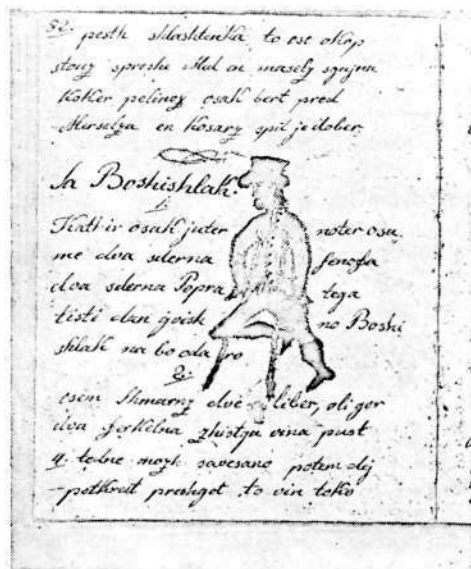 52. pesth shlashtenka to ose okop
stouz spreshi Med on masely
koker pelinoz osak bert pred
Merselza en kosarz spil je dober.
Sa Boshishlak.
1.
Kathir osak juter noter osu.
me dva sderna fenofla
dva sderna Popra tega
tisti dan gvish no Boshi
shlak na bo oda ro
2.
osem Shmarnz dve liber, oli gor
dva ferkelna zhistga vina pust
4. tedne mozh savesano potem dej
potkreit preshgot to vin toko